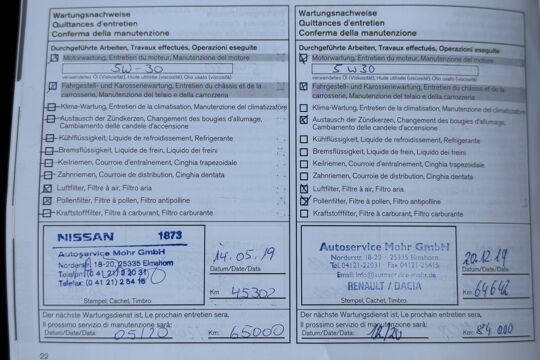 Wartungsnachweise
Quittances d'entretien
Conferma della manutenzione
Durchgeführte Arbeiten, Travaux effectués, Operazioni eseguite
Motorwartung, Entretien du moteur, Manutenzione del motore
5W-30
verwendetes Öl (Viskosität), Huile utilisée (viscosité), Olio usato (viscosità)
Fahrgestell- und Karosseriewartung, Entretien du châssis et de la
carrosserie, Manutenzione del telaio e della carrozzeria
Klima-Wartung, Entretien de la climatisation, Manutenzione del climatizzatore
Austausch der Zündkerzen, Changement des bougies d'allumage,
Cambiamento delle candele d'accensione
Kühlflüssigkeit, Liquide de refroidissement, Refrigerante
Bremsflüssigkeit, Liquide de frein, Liquido dei freini
Keilriemen, Courroie d'entraînement, Cinghia trapezoidale
Zahnriemen, Courroie de distribution, Cinghia dentata
Luftfilter, Filtre à air, Filtro aria
Pollenfilter, Filtre à pollen, Filtro antipolline
Kraftstofffilter, Filtre à carburant, Filtro carburante
NISSAN 1873
Autoservice Mohr GmbH
Norderstr. 18-20, 25335 Elmshorn
Telefon (0 41 21) 2 20 31
Telefax (0 41 21) 2 54 15
Stempel, Cachet, Timbro
14.05.19
Datum/Date/Data
Km 45302
Der nächste Wartungsdienst ist, Le prochain entretien sera,
Il prossimo servizio di manutenzione sarà:
Datum/Date/Data: 05/20 Km: 65000
22
Wartungsnachweise
Quittances d'entretien
Conferma della manutenzione
Durchgeführte Arbeiten, Travaux effectués, Operazioni eseguite
Motorwartung, Entretien du moteur, Manutenzione del motore
5W30
verwendetes Öl (Viskosität), Huile utilisée (viscosité), Olio usato (viscosità)
Fahrgestell- und Karosseriewartung, Entretien du châssis et de la
carrosserie, Manutenzione del telaio e della carrozzeria
Klima-Wartung, Entretien de la climatisation, Manutenzione del climatizzatore
Austausch der Zündkerzen, Changement des bougies d'allumage,
Cambiamento delle candele d'accensione
Kühlflüssigkeit, Liquide de refroidissement, Refrigerante
Bremsflüssigkeit, Liquide de frein, Liquido dei freini
Keilriemen, Courroie d'entraînement, Cinghia trapezoidale
Zahnriemen, Courroie de distribution, Cinghia dentata
Luftfilter, Filtre à air, Filtro aria
Pollenfilter, Filtre à pollen, Filtro antipolline
Kraftstofffilter, Filtre à carburant, Filtro carburante
Autoservice Mohr GmbH
Norderstr. 18-20 · 25335 Elmshorn
Tel. 04121-22031 · Fax 04121-25415
Email: info@autoservice-mohr.de
RENAULT / DACIA
Stempel, Cachet, Timbro
20.12.19
Datum/Date/Data
Km 64642
Der nächste Wartungsdienst ist, Le prochain entretien sera,
Il prossimo servizio di manutenzione sarà:
Datum/Date/Data: 12/20 Km: 84000